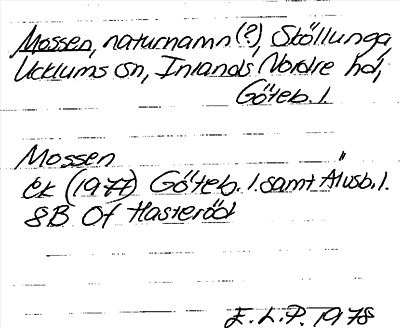 Mossen, naturnamn (?), Stöllunga,
Ucklums sn, Inlands Nordre hd,
Göteb. l.
Mossen
Ek (1977) Göteb. l. samt Älvsb. l.
8B 0f Hasteröd
E. L. P. 1978